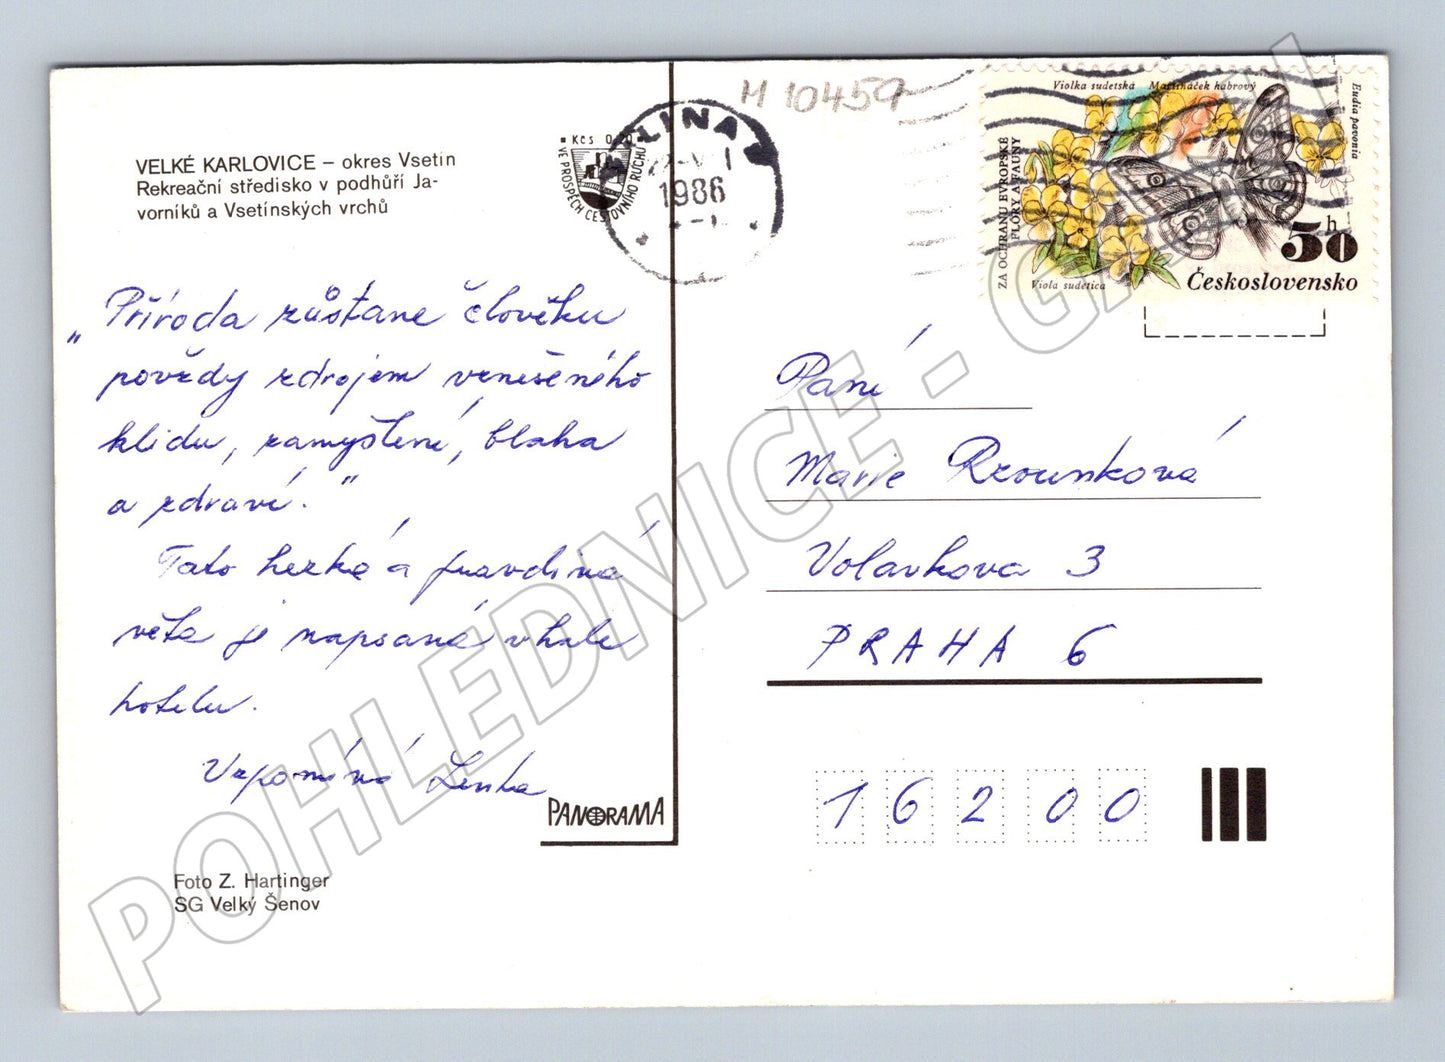 VELKÉ KARLOVICE – okres Vsetín
Rekreační středisko v podhůří Ja-
vorníků a Vsetínských vrchů
▪ Kčs 0,20 ▪
VE PROSPĚCH CESTOVNÍHO RUCHU
LINA
1986
M 10459
Violka sudetská Martináček habrový
Eudia pavonia
ZA OCHRANU EVROPSKÉ
FLÓRY A FAUNY
Viola sudetica
50 h
Československo
„Příroda zůstane člověku
povždy zdrojem vznešeného
klidu, zamyšlení, blaha
a zdraví.“
Tato hezká a pravdivá
věta je napsaná v hale
hotelu.
Vzpomíná Lenka
PANORAMA
Foto Z. Hartinger
SG Velký Šenov
Paní
Marie Rzounková
Volavkova 3
PRAHA 6
16200
POHLEDNICE - GALERIE